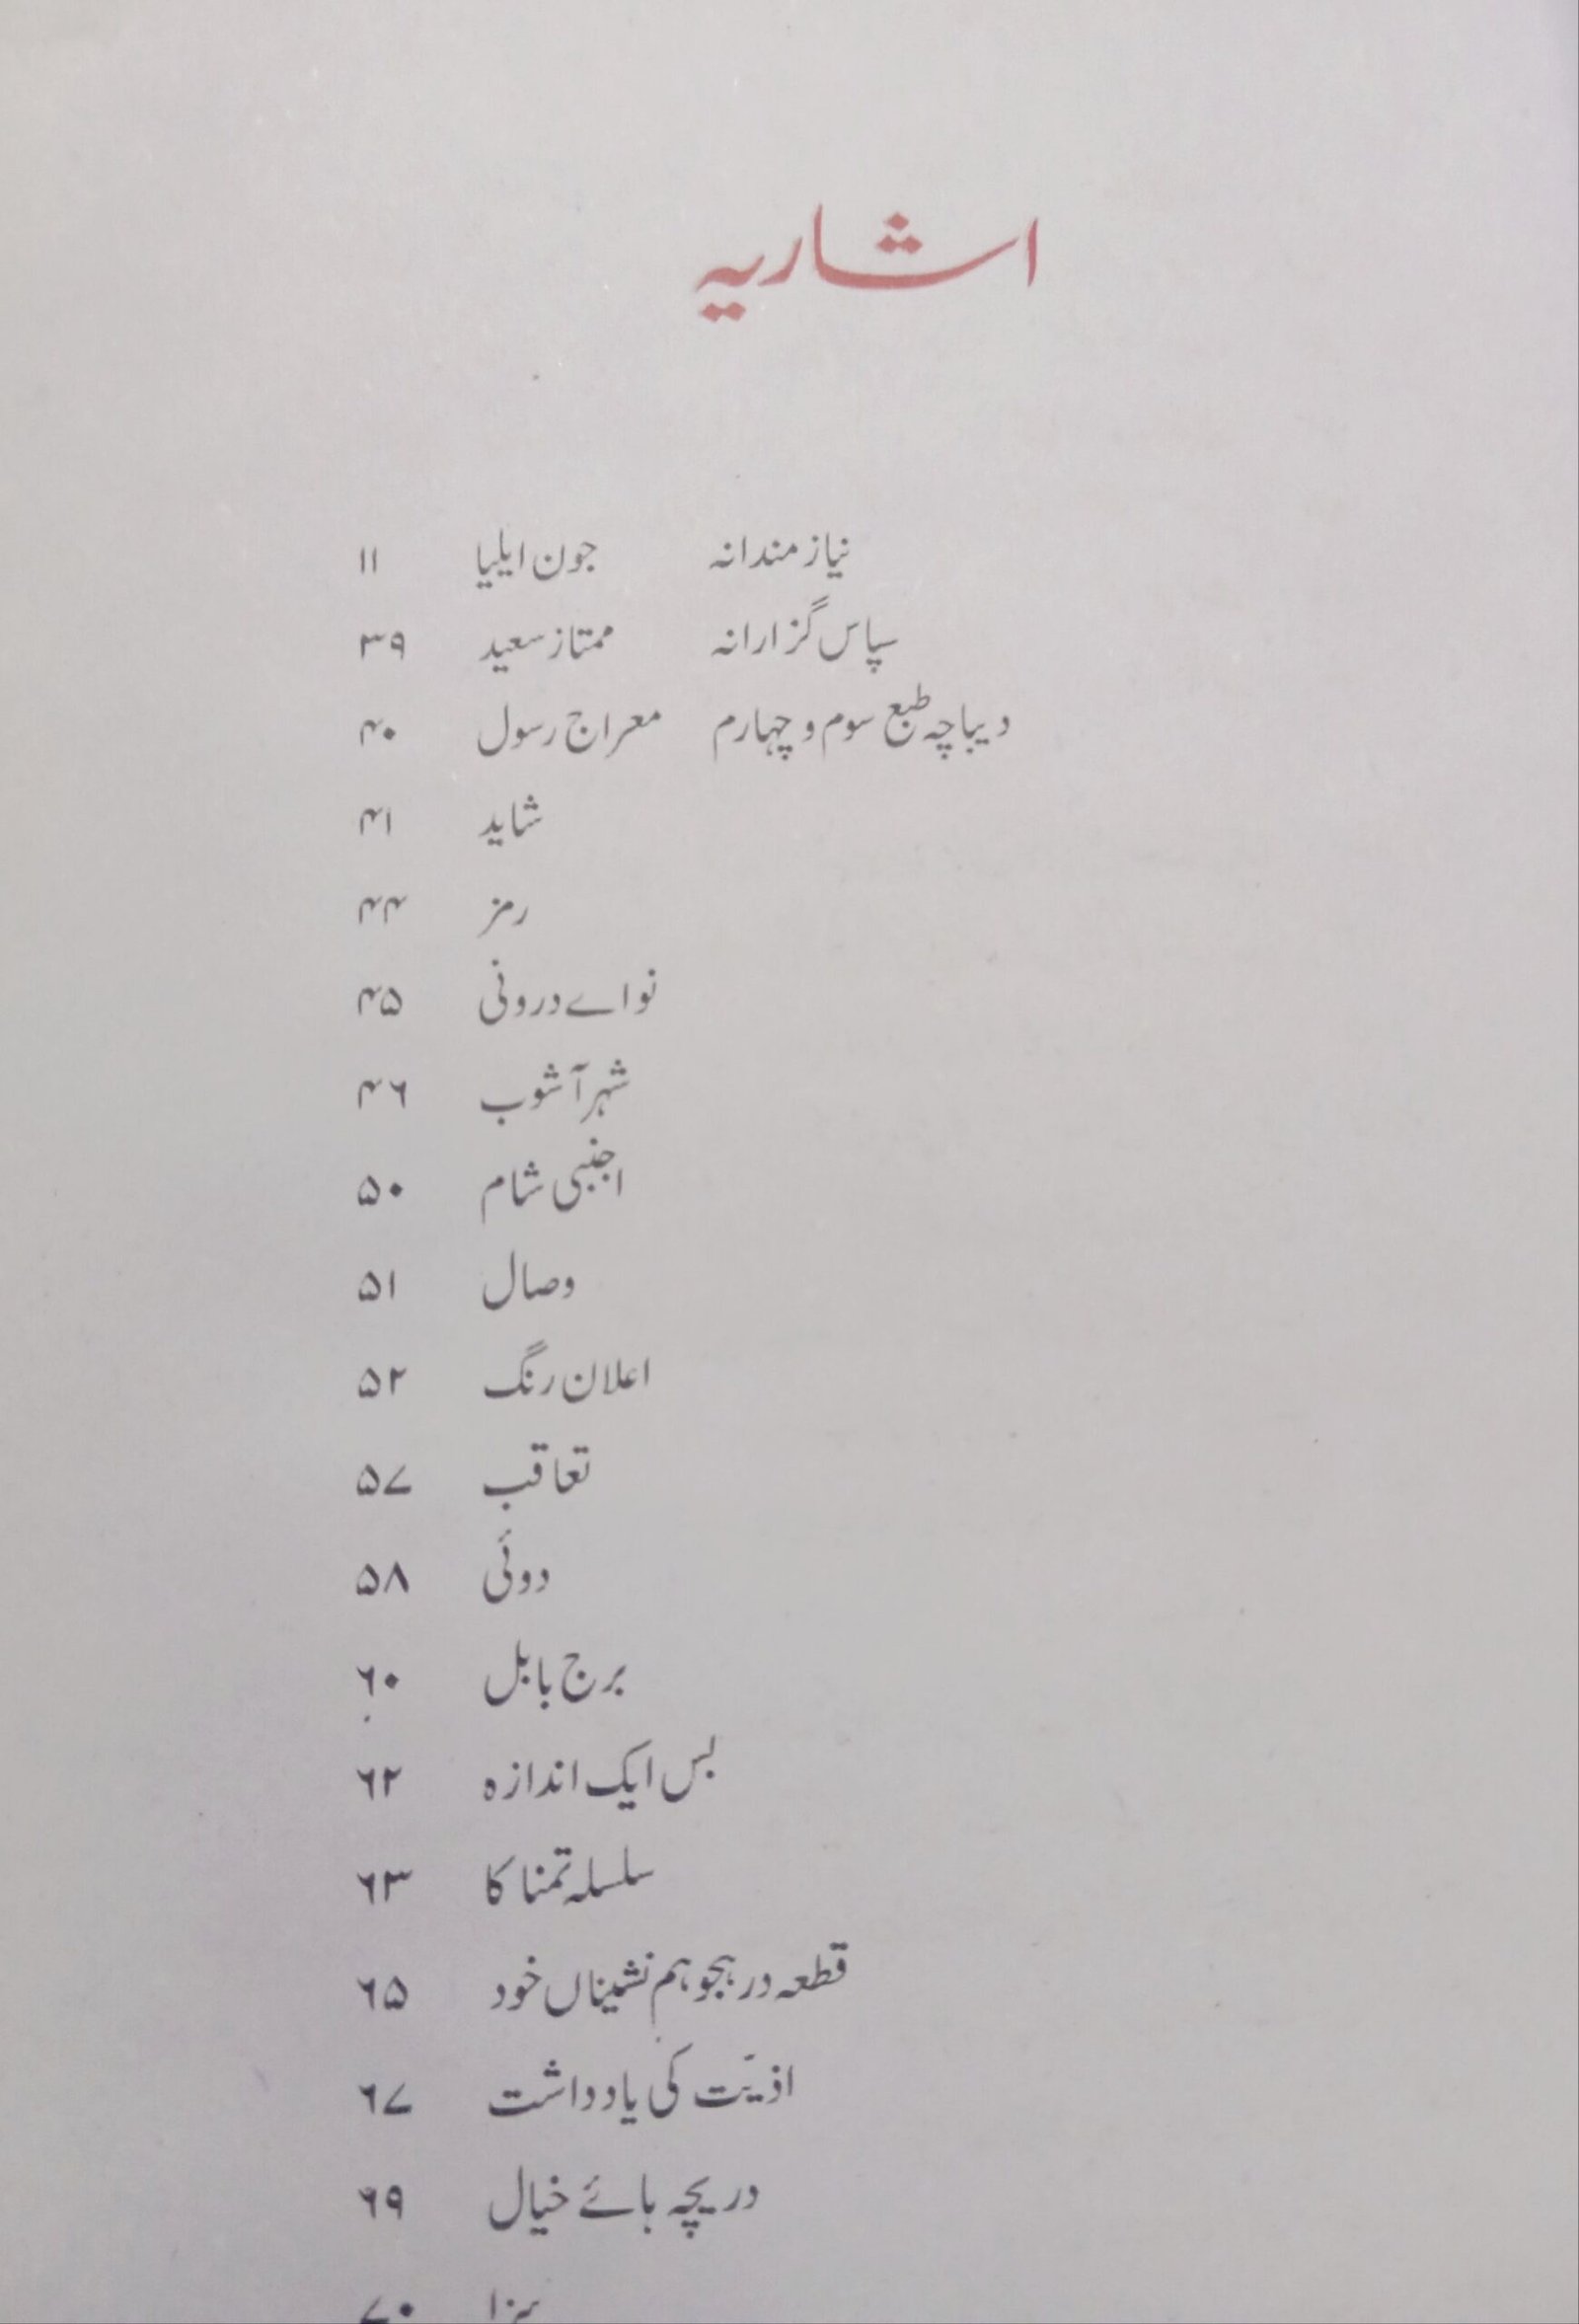 اشاریہ
نیازمندانہ جون ایلیا ۱۱
سپاس گزارانہ ممتاز سعید ۳۹
دیباچہ طبع سوم و چہارم معراج رسول ۴۰
شاید ۴۱
رمز ۴۴
نواے درونی ۴۵
شہر آشوب ۴۶
اجنبی شام ۵۰
وصال ۵۱
اعلان رنگ ۵۲
تعاقب ۵۷
دوئی ۵۸
برج بابل ۶۰
بس ایک اندازہ ۶۲
سلسلہ تمنا کا ۶۳
قطعہ در ہجو ہم نشیناں خود ۶۵
اذیّت کی یادداشت ۶۷
دریچہ ہائے خیال ۶۹
سزا ۷۰